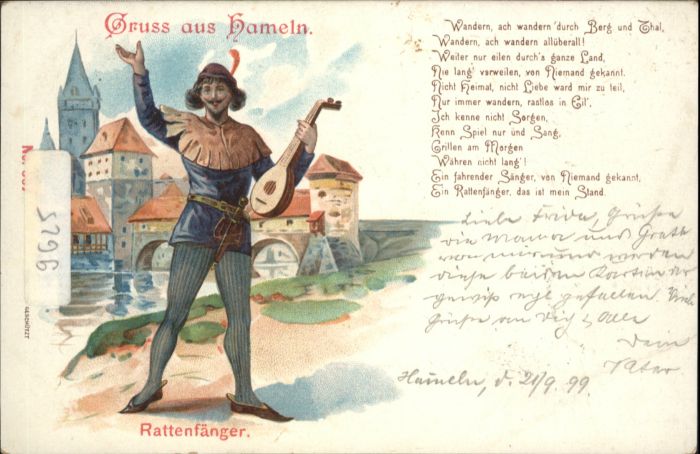 Gruss aus Hameln.
Wandern, ach wandern durch Berg und Thal,
Wandern, ach wandern allüberall!
Weiter nur eilen durch's ganze Land,
Nie lang' verweilen, von Niemand gekannt.
Nicht Heimat, nicht Liebe ward mir zu teil,
Nur immer wandern, rastlos in Eil',
Ich kenne nicht Sorgen,
Kenn Spiel nur und Sang,
Grillen am Morgen
Währen nicht lang'!
Ein fahrender Sänger, von Niemand gekannt,
Ein Rattenfänger, das ist mein Stand.
Liebe Frida, Grüße
die Mama und Greth
von mir und werden
diese beiden Karten dir
gewiß gefallen. Viele
Grüße an Dich & Alle
Dein
Vater
Hameln, d. 21/9 99.
Rattenfänger.
5296
GESCHÜTZT